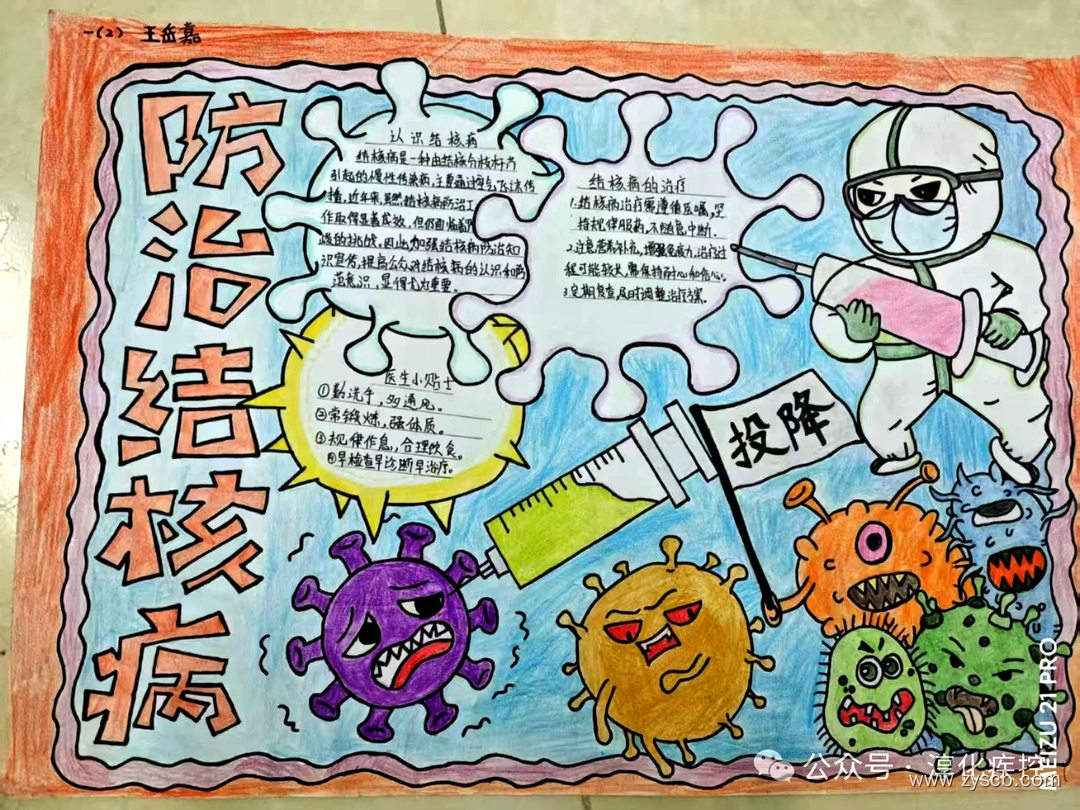 一(2) 王岳嘉
防治结核病
认识结核病
结核病是一种由结核分枝杆菌
引起的慢性传染病,主要通过空气飞沫传
播,近年来,虽然结核病防治工
作取得显著成效,但仍面临着严
峻的挑战。因此,加强结核病防治知
识宣传,提高公众对结核病的认识和防
范意识,显得尤为重要。
结核病的治疗
1.结核病治疗需遵循医嘱,坚
持规律服药,不随意中断.
2.注意营养补充,增强免疫力,治疗过
程可能较长,需保持耐心和信心.
3.定期复查,及时调整治疗方案.
医生小贴士
①勤洗手,多通风。
②常锻炼,强体质。
③规律作息,合理饮食。
④早检查早诊断早治疗。
投降
MEIZU 21 PRO
公众号·淳化疾控
www.zyscb.com